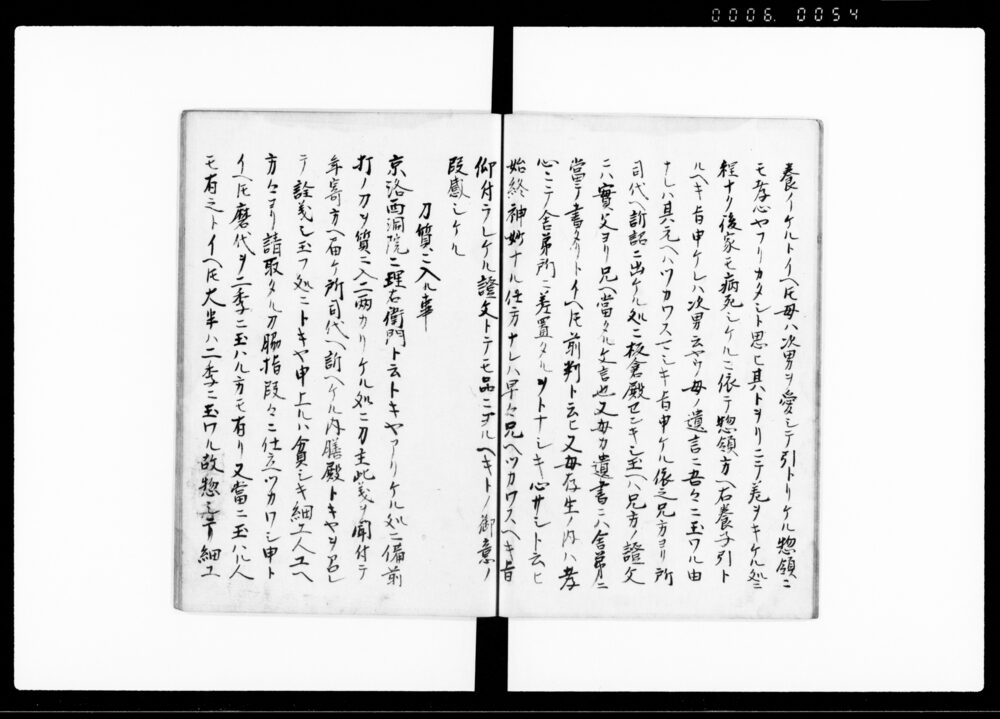 0006. 0054
養イケルトイヘ𪜈母ハ次男ヲ愛シテ引トリケル惣領ニ
モ孝心ヤフリカタシト思ヒ其トヲリニテ差ヲキケル処ニ
程ナク後家モ病死シケルニ依テ惣領方ヘ右養子引ト
ルヘキ旨申ケレハ次男云ヤウ母ノ遺言ニ吾々ニ玉ワル由
ナレハ其元ヘハツカワスマシキ旨申ケル依之兄方ヨリ所
司代ヘ訴詔ニ出ケル処ニ板倉殿センキシ玉ヘハ兄方ノ證文
ニハ實父ヨリ兄ヘ當タル文言也又母カ遺書ニハ舎弟カニ
當テ書タリトイヘ𪜈前判ト云ヒ又母存生ノ内ハ孝
心ニテ舎弟所ニ差置タルヲトナシキ心サシト云ヒ
始終神妙ナル仕方ナレハ早々兄ヘツカワスヘキ旨
仰付ラレケル證文トテモ品ニヨルヘキトノ御意ノ
段感シケル
刀質ニ入ル事
京洛西洞院ニ理右衛門ト云トキヤアリケル処ニ備前
打ノ刀ヲ質ニ入二両カリケル処ニ刀主此義ヲ聞付テ
年寄方ヘ届ケ所司代ヘ訴ヘケル内膳殿トキヤヲ召レ
テ詮義シ玉フ処ニトキヤ申上ルハ貧シキ細工人ユヘ
方々ヨリ請取タル刀脇指段々ニ仕立ヘツカワシ申ト
イヘ𪜈磨代ヲ二季ニ玉ハル方モ有リ又當ニ玉ハル人
モ有之トイヘ𪜈大半ハ二季ニ玉ワル故惣シテ細工